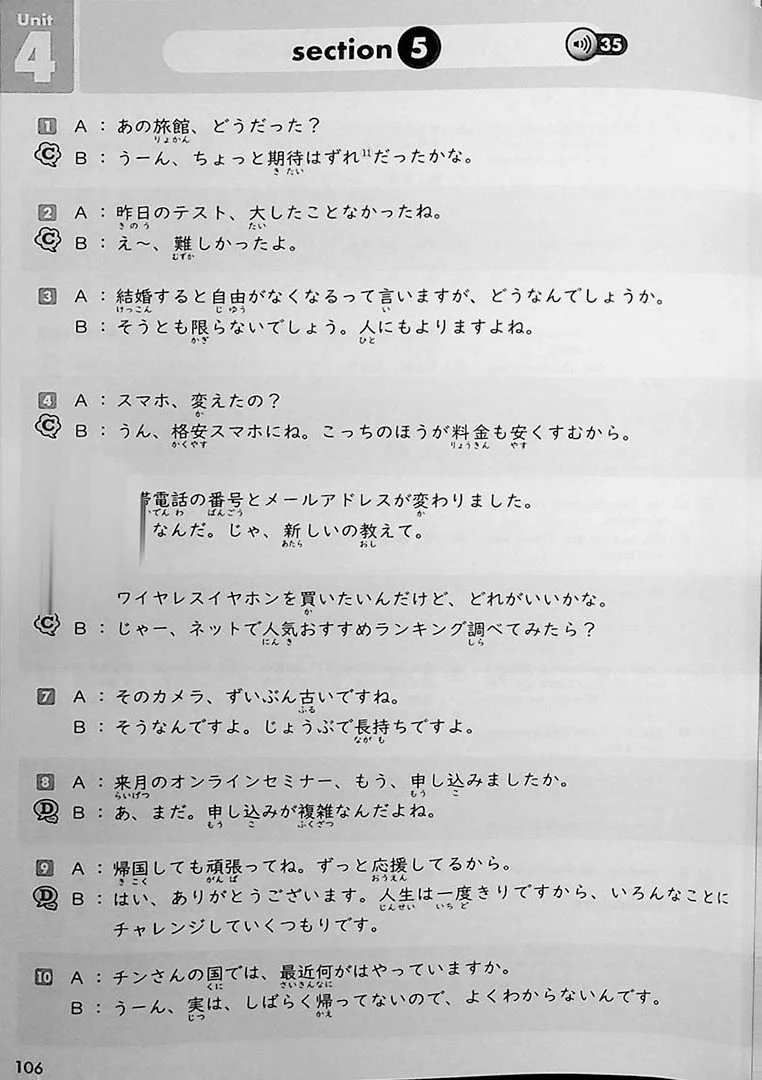 Unit 4
section 5
35
1 A：あの旅館、どうだった？
りょかん
C B：うーん、ちょっと期待はずれ11だったかな。
きたい
2 A：昨日のテスト、大したことなかったね。
きのう たい
C B：え〜、難しかったよ。
むずか
3 A：結婚すると自由がなくなるって言いますが、どうなんでしょうか。
けっこん じゆう い
B：そうとも限らないでしょう。人にもよりますよね。
かぎ ひと
4 A：スマホ、変えたの？
か
C B：うん、格安スマホにね。こっちのほうが料金も安くすむから。
かくやす りょうきん やす
電話の番号とメールアドレスが変わりました。
でんわ ばんごう か
なんだ。じゃ、新しいの教えて。
あたら おし
ワイヤレスイヤホンを買いたいんだけど、どれがいいかな。
か
C B：じゃー、ネットで人気おすすめランキング調べてみたら？
にんき しら
7 A：そのカメラ、ずいぶん古いですね。
ふる
B：そうなんですよ。じょうぶで長持ちですよ。
ながも
8 A：来月のオンラインセミナー、もう、申し込みましたか。
らいげつ もう こ
D B：あ、まだ。申し込みが複雑なんだよね。
もう こ ふくざつ
9 A：帰国しても頑張ってね。ずっと応援してるから。
きこく がんば おうえん
D B：はい、ありがとうございます。人生は一度きりですから、いろんなことに
じんせい いちど
チャレンジしていくつもりです。
10 A：チンさんの国では、最近何がはやっていますか。
くに さいきんなに
B：うーん、実は、しばらく帰ってないので、よくわからないんです。
じつ かえ
106